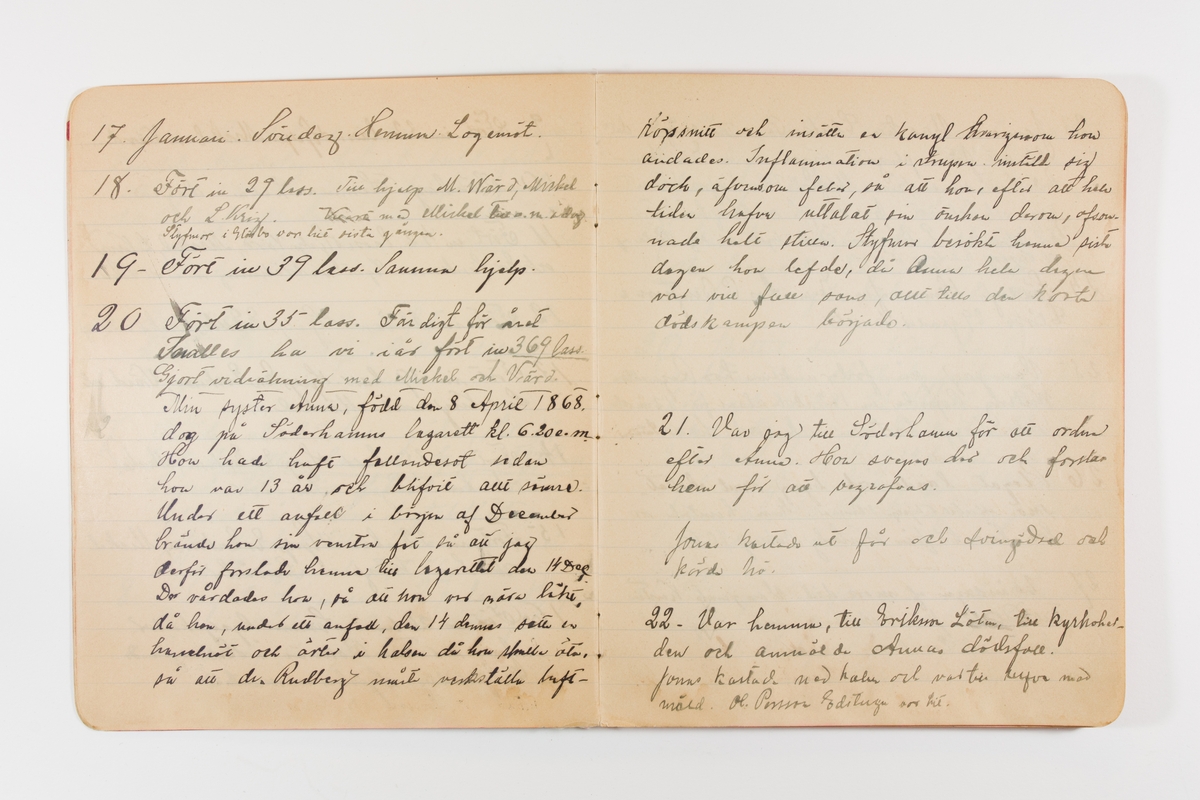 17. Januari. Söndag. Hemma. Logemöt.
18. Fört in 29 lass. Till hjelp M. Wärd, Mickel
och L Krig. med Mickel e.m. i dag
Styfmor i var hit sista gången.
19 - Fört in 39 lass. Samma hjelp.
20 Fört in 35 lass. Färdigt för året
Inalles ha vi i år fört in 369 lass.
Gjort vidräkning med Mickel och Wärd.
Min syster Anna, född den 8 April 1868.
dog på Söderhamns lazarett kl. 6.20 e.m.
Hon hade haft fallandesot sedan
hon var 13 år och blifvit allt sämre.
Under ett anfall i början af December
brände hon sin venstra fot så att jag
derför forslade henne till lazarettet den 14 Dec.
Der vårdades hon, så att hon var nära läkt,
då hon, under ett anfall, den 14 dennes satte en
och ärter i halsen då hon skulle äta,
så att d:r Rudberg måste verkställa luft-
rörssnitt och insätta en kanyl hvarigenom hon
andades. Inflammation i strupen instälde sig
dock, äfvensom feber, så att hon, efter att hela
tiden hafva uttalat sin önskan derom, afsom-
nade helt stilla. Styfmor besökte henne sista
dagen hon lefde, då Anna hela dagen
var vid full sans, allt tills den korta
dödskampen började.
21. Var jag till Söderhamn för att ordna
efter Anna. Hon svepes der och forslas
hem för att begrafvas.
Jonas kastade ut får och svingödsel och
körde hö.
22 - Var hemma, till Eriksson Löten, till kyrkoher-
den och anmälde Annas dödsfall.
Jonas kastade ned halm och var till med
mäld. Ol. Persson var hit.